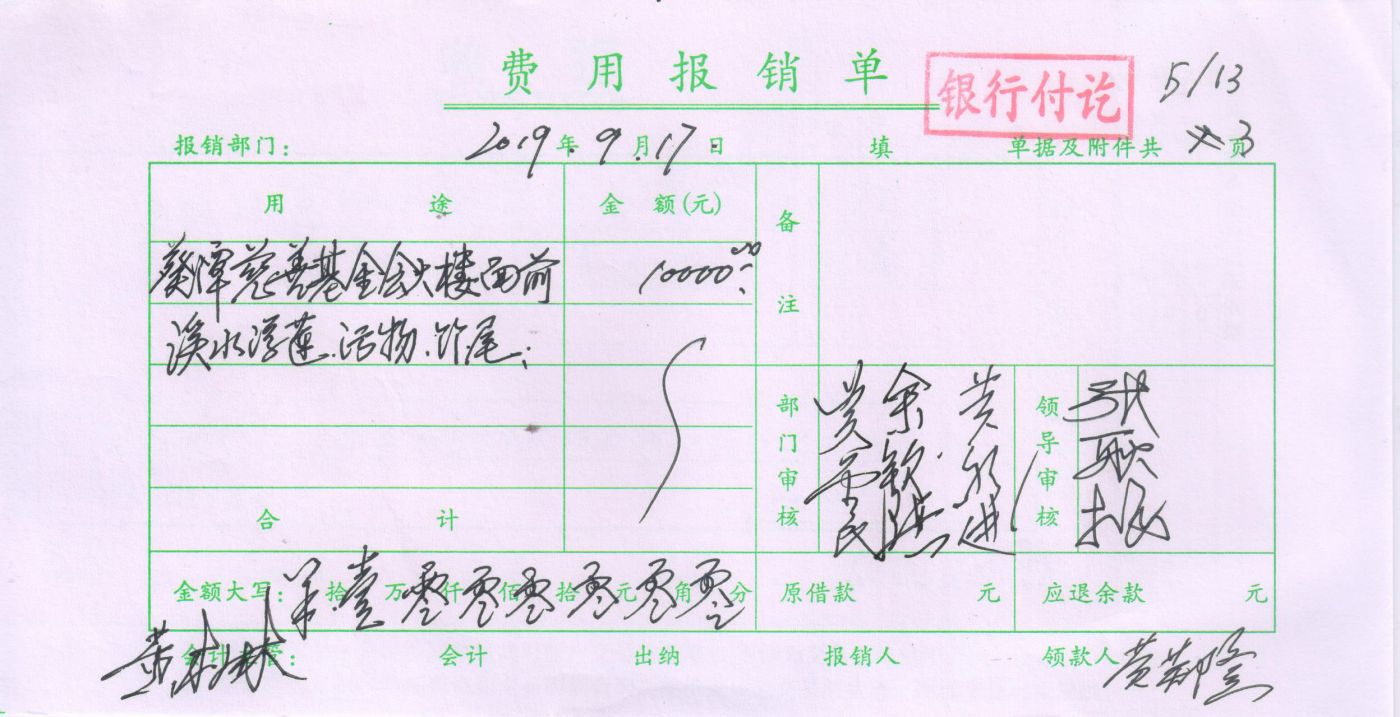 费用报销单
银行付讫
5/13
报销部门： 2019年9月17日 填 单据及附件共 3 页
用途 金额(元) 备注
葵潭慈善基金会大楼面前 10000.00
溪水浮莲.污物.竹尾;
部门审核 余 黄 领导审核 张
合计
金额大写： 拾壹万零仟零佰零拾零元零角零分 原借款 元 应退余款 元
会计 出纳 报销人 领款人 黄